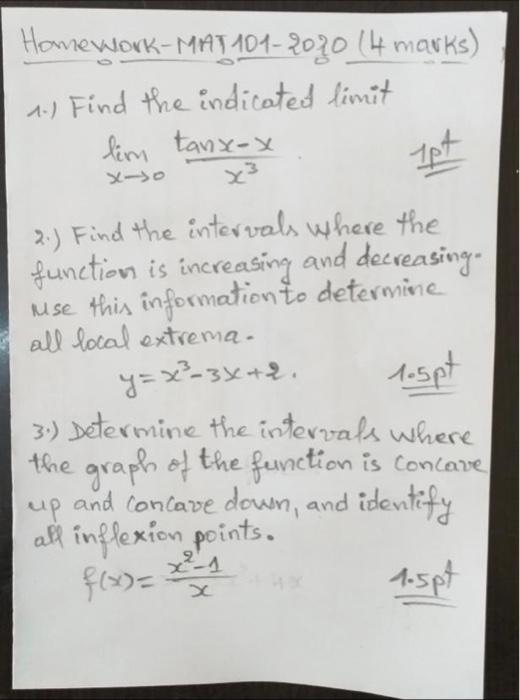 Homework-MAT101-2020 (4 marks)
1.) Find the indicated limit
lim tanx-x / x³ 1pt
x→0
2.) Find the intervals where the
function is increasing and decreasing.
use this information to determine
all local extrema.
y=x³-3x+2. 1.5pt
3.) Determine the intervals where
the graph of the function is concave
up and concave down, and identify
all inflexion points.
f(x)= x²-1 / x 1.5pt